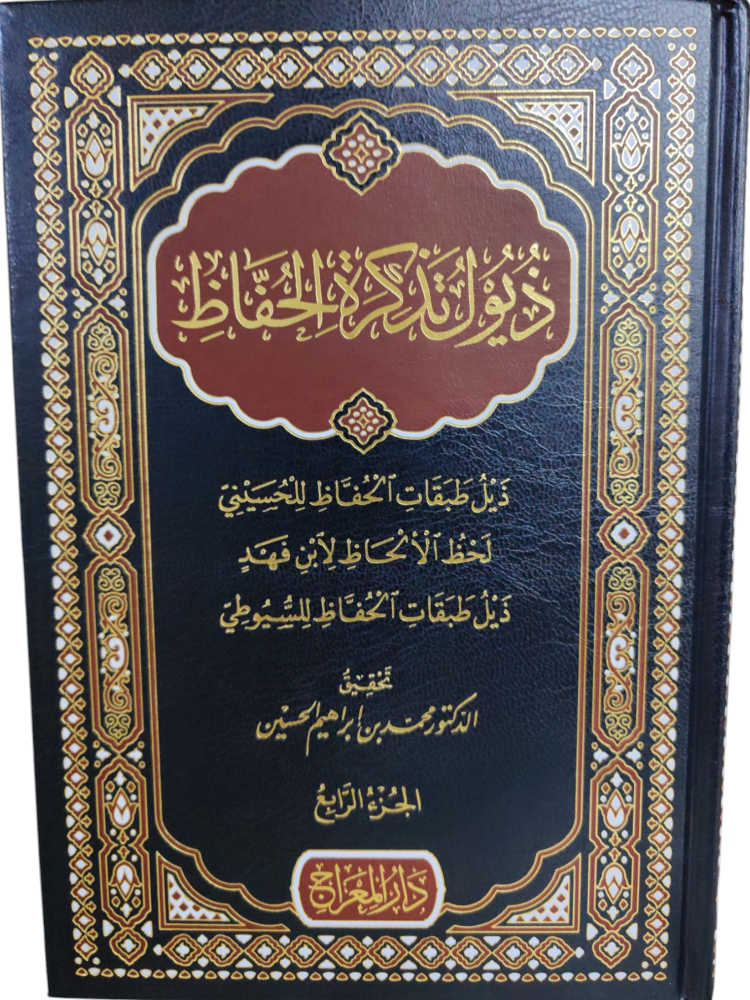 ذُيُولُ تَذْكِرَةِ الحُفَّاظِ
ذَيْلُ طَبَقَاتِ ٱلْحُفَّاظِ لِلْحُسَيْنِيِّ
لَحْظُ ٱلْأَلْحَاظِ لِٱبْنِ فَهْدٍ
ذَيْلُ طَبَقَاتِ ٱلْحُفَّاظِ لِلسُّيُوطِيِّ
تَحْقِيقُ
الدكتور محمد بن إبراهيم الحسين
الجُزْءُ الرَّابِعُ
دَارُ المِعْرَاجِ